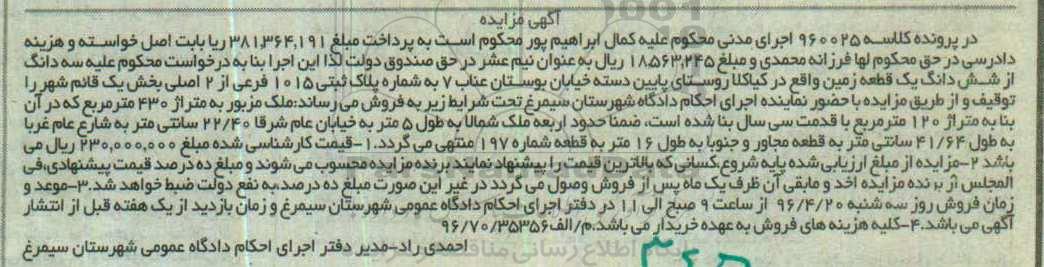 آگهی مزایده
در پرونده کلاسه ۹۶۰۰۲۵ اجرای مدنی محکوم علیه کمال ابراهیم پور محکوم است به پرداخت مبلغ ۳۸۱,۳۶۴,۱۹۱ ریا بابت اصل خواسته و هزینه
دادرسی در حق محکوم لها فرزانه محمدی و مبلغ ۱۸۵۶۳,۲۴۵ ریال به عنوان نیم عشر در حق صندوق دولت لذا این اجرا بنا به درخواست محکوم علیه سه دانگ
از شش دانگ یک قطعه زمین واقع در کیاکلا روستای پایین دسته خیابان بوستان عناب ۷ به شماره پلاک ثبتی ۱۰۱۵ فرعی از ۲ اصلی بخش یک قائم شهر را
توقیف و از طریق مزایده با حضور نماینده اجرای احکام دادگاه شهرستان سیمرغ تحت شرایط زیر به فروش می رساند:ملک مزبور به متراژ ۴۳۰ مترمربع که در آن
بنا به متراژ ۱۲۰ مترمربع با قدمت سی سال بنا شده است، ضمنا حدود اربعه ملک شمالا به طول ۵ متر به خیابان عام شرقا ۲۲/۴۰ سانتی متر به شارع عام غربا
به طول ۴۱/۶۴ سانتی متر به قطعه مجاور و جنوبا به طول ۱۶ متر به قطعه شماره ۱۹۷ منتهی می گردد.۱-قیمت کارشناسی شده مبلغ ۲۳۰,۰۰۰,۰۰۰ ریال می
باشد ۲-مزایده از مبلغ ارزیابی شده پایه شروع،کسانی که بالاترین قیمت را پیشنهاد نمایند برنده مزایده محسوب می شوند و مبلغ ده درصد قیمت پیشنهادی،فی
المجلس از برنده مزایده اخذ و مابقی آن ظرف یک ماه پس از فروش وصول می گردد در غیر این صورت مبلغ ده درصد،به نفع دولت ضبط خواهد شد.۳-موعد و
زمان فروش روز سه شنبه ۹۶/۴/۲۰ از ساعت ۹ صبح الی ۱۱ در دفتر اجرای احکام دادگاه عمومی شهرستان سیمرغ و زمان بازدید از یک هفته قبل از انتشار
آگهی می باشد.۴-کلیه هزینه های فروش به عهده خریدار می باشد.م/الف۹۶/۷۰/۳۵۳۵۶
احمدی راد-مدیر دفتر اجرای احکام دادگاه عمومی شهرستان سیمرغ